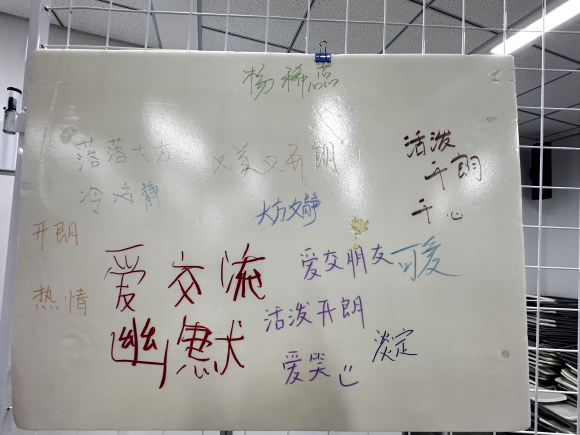 杨稀蕊
落落大方
又美又开朗
活泼
开朗
冷冷静静
大方文静
开心
开朗
爱交流
爱交朋友
可爱
热情
幽默
活泼开朗
淡定
爱笑